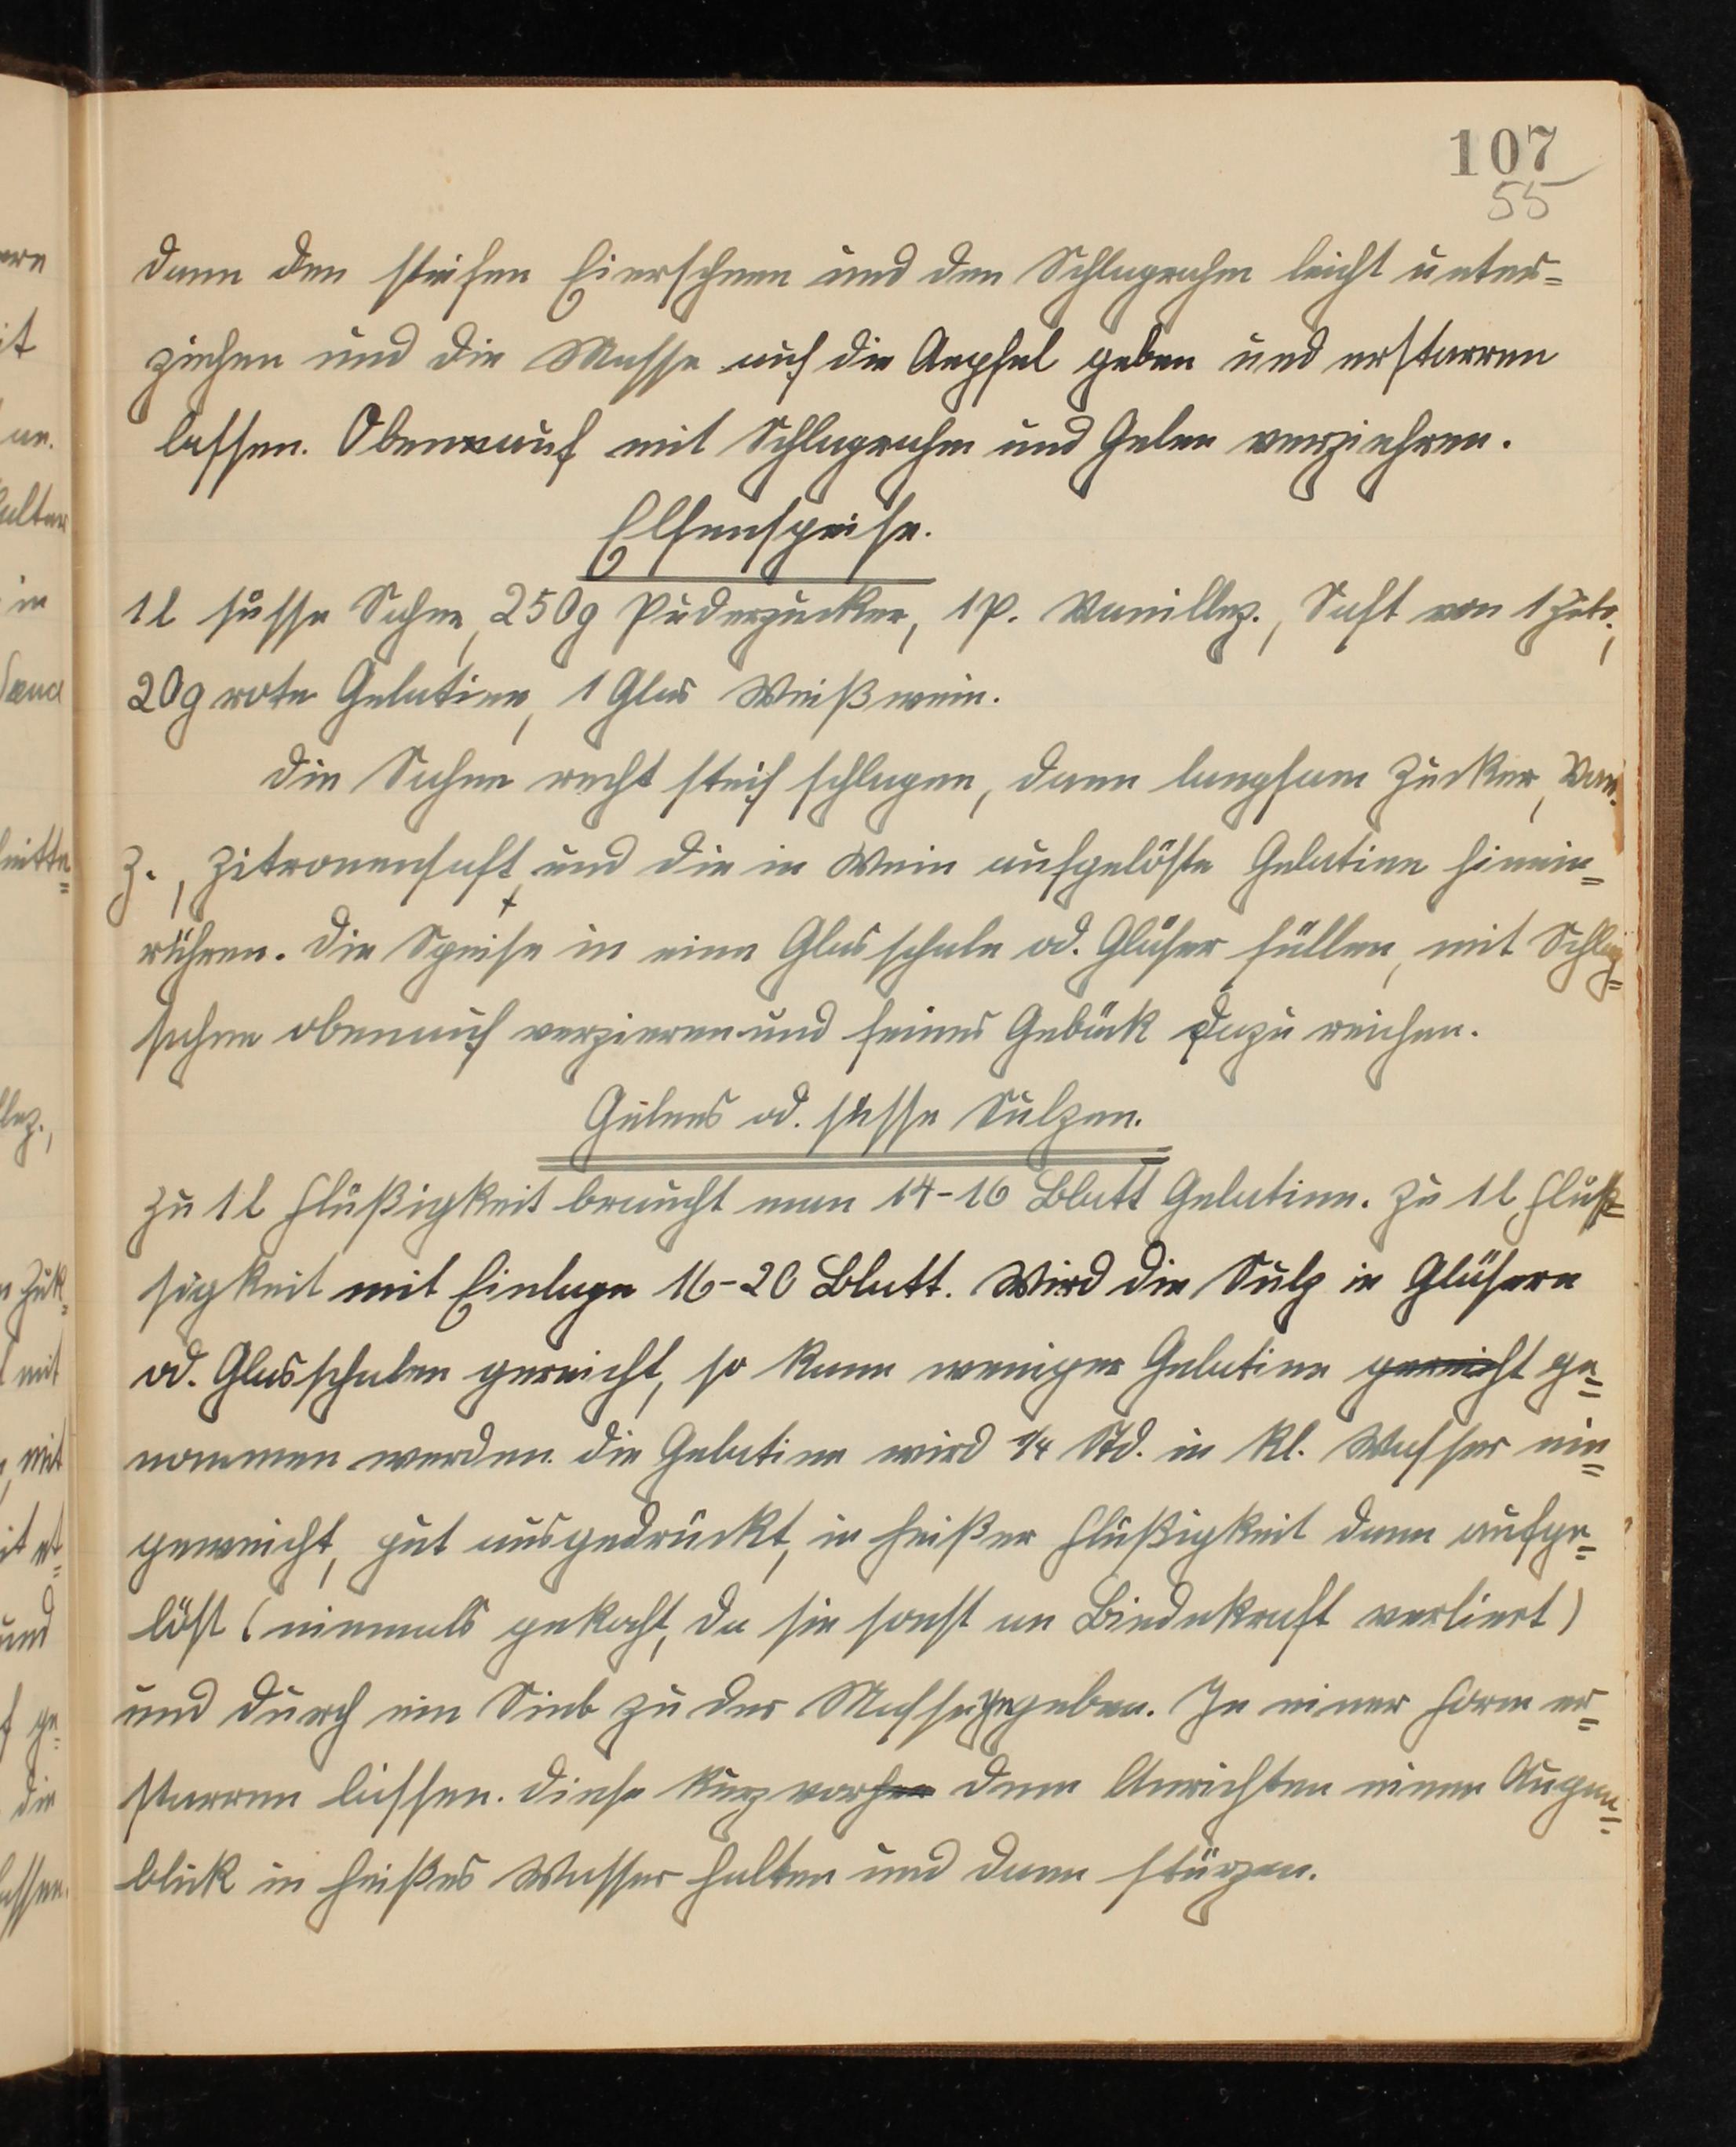 107
55
dann den steifen Eierschnee und den Schlagrahm leicht unter=
ziehen und die Masse auf die Aepfel geben und erstarren
lassen. Obenauf mit Schlagrahm und Gelee verziehren.
Elfenspeise.
1 l süsse Sahne, 250g Puderzucker, 1 P. Vanillez., Saft von 1 Zitr.,
20g rote Gelatine, 1 Glas Weißwein.
Die Sahne recht steif schlagen, dann langsam Zucker, Van.
Z., Zitronensaft, und die in Wein aufgelöste Gelatine hinein=
rühren. Die Speise in eine Glasschale od. Gläser füllen, mit Schlag=
sahne obenauf verzieren und feines Gebäck dazu reichen.
Gelees od. süsse Sulzen.
Zu 1 l Flüßigkeit braucht man 14-16 Blatt Gelatine. Zu 1 l Flüß=
sigkeit mit Einlage 16-20 Blatt. Wird die Sulz in Gläsern
od. Glasschalen gereicht, so kann weniger Gelatine gereicht ge=
nommen werden. Die Gelatine wird 1/4 Std. in kl. Wasser ein=
geweicht, gut ausgedrückt, in heißer Flüßigkeit dann aufge=
löst (niemals gekocht, da sie sonst an Bindekraft verliert)
und durch ein Sieb zu der Masse gegeben. In einer Form er=
starren lassen. Diese kurz vorher dem Anrichten einen Augen=
blick in heißes Wasser halten und dann stürzen.